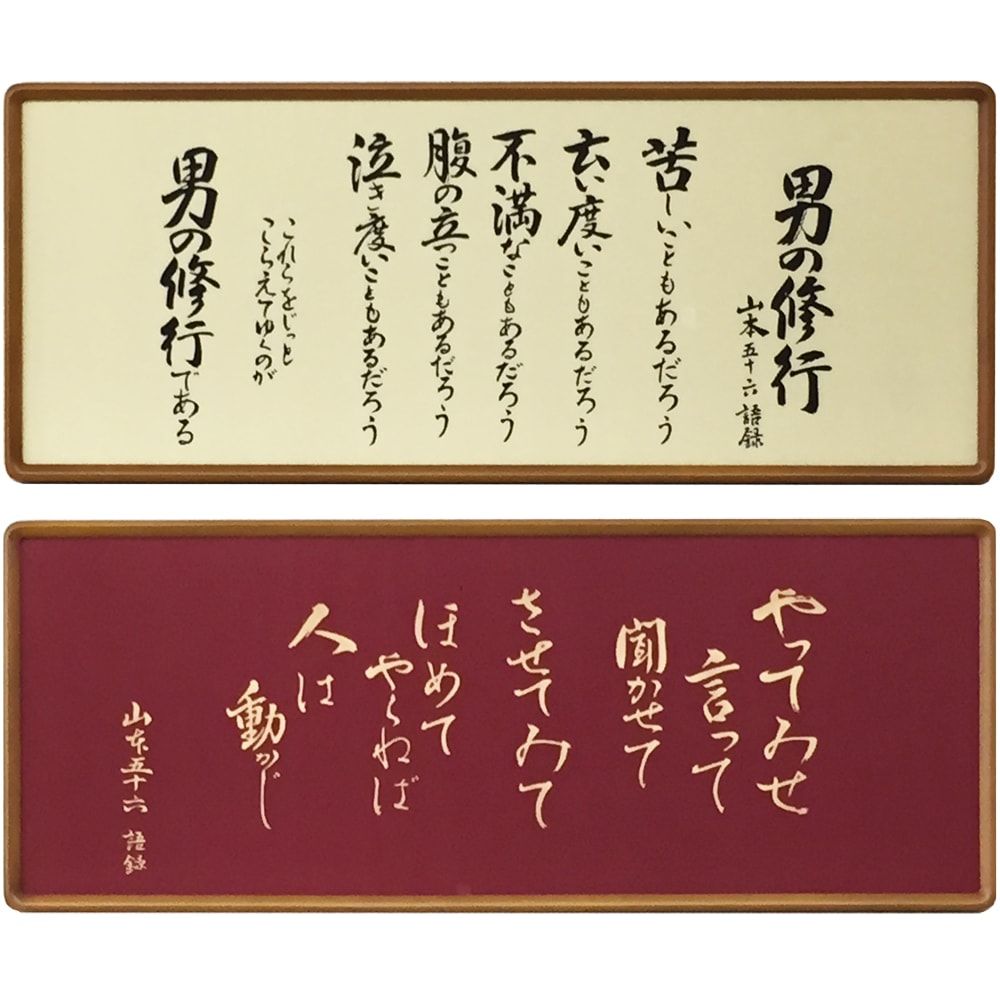 男の修行
山本五十六 語録
苦しいこともあるだろう
云い度いこともあるだろう
不満なこともあるだろう
腹の立つこともあるだろう
泣き度いこともあるだろう
これらをじっと
こらえてゆくのが
男の修行である
やってみせ
言って
聞かせて
させてみて
ほめて
やらねば
人は
動かじ
山本五十六 語録